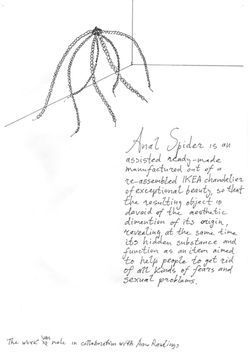 Anal Spider is an
assisted ready-made
manufactured out of a
re-assembled IKEA chandelier
of exceptional beauty, so that
the resulting object is
devoid of the aesthetic
dimention of its origin,
revealing at the same time
its hidden substance and
function as an item aimed
to help people to get rid
of all kinds of fears and
sexual problems.
The work was male in collaboration with